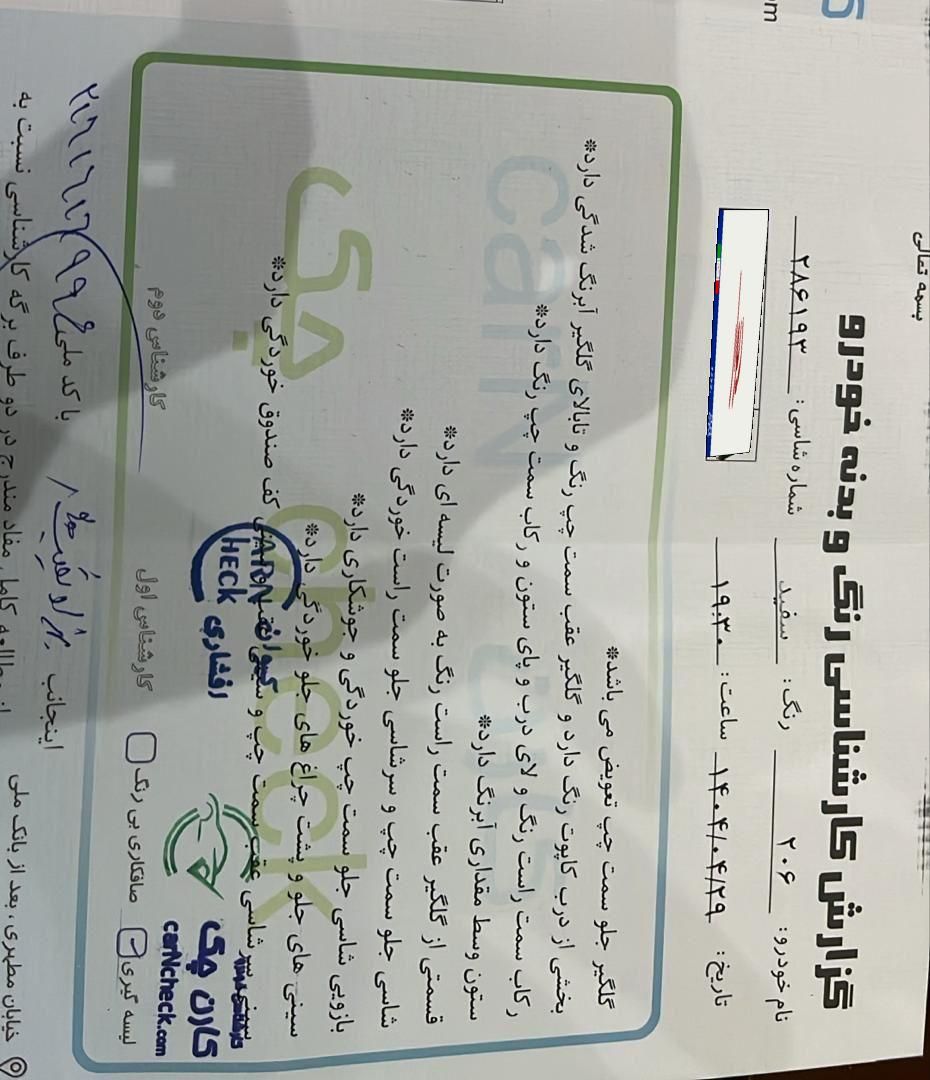 بسمه تعالی
گزارش کارشناسی رنگ و بدنه خودرو
نام خودرو: ۲۰۶ رنگ: سفید شماره شاسی: ۲۸۶۱۹۳
تاریخ: ۱۴۰۴/۰۴/۲۹ ساعت: ۱۹:۳۰
گلگیر جلو سمت چپ تعویض می باشد*
بخشی از درب کاپوت رنگ دارد و گلگیر عقب سمت چپ رنگ و تابالای گلگیر آبرنگ شدگی دارد*
رکاب سمت راست رنگ و لای درب و پای ستون و رکاب سمت چپ رنگ دارد*
ستون وسط مقداری آبرنگ دارد*
قسمتی از گلگیر عقب سمت راست رنگ به صورت لیسه ای دارد*
شاسی جلو سمت چپ و سرشاسی جلو سمت راست خوردگی دارد*
بازویی شاسی جلو سمت چپ خوردگی و جوشکاری دارد*
سینی های جلو و پشت چراغ های جلو خوردگی دارد*
سرشاسی عقب سمت چپ و سینی کف صندوق خوردگی دارد*
کارن چک
carNcheck.com
CARN CHECK
افشاری
لیسه گیری صافکاری بی رنگ کارشناس اول کارشناس دوم
اینجانب با کد ملی
خیابان مطهری، بعد از بانک ملی